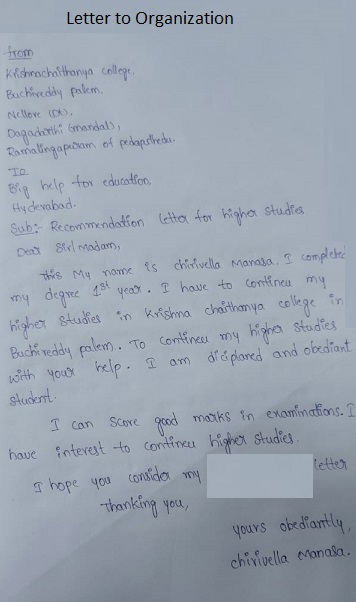 Letter to Organization
from
Krishnachaithanya college,
Buchireddy palem,
Nellore (Dt),
Dagadarthi (mandal),
Ramalingapuram of pedaputhedu.
To
Big help for education,
Hyderabad.
Sub:- Recommendation letter for higher Studies
Dear Sir/Madam,
This My name is chirivella Manasa. I completed
my degree 1st year. I have to contineu my
higher Studies in Krishna chaithanya college in
Buchireddy palem. To contineu my higher Studies
with your help. I am diciplaned and obediant
Student.
I can Score good marks in examinations. I
have interest to contineu higher Studies.
I hope you consider my letter
Thanking you,
yours obediantly,
chirivella Manasa.